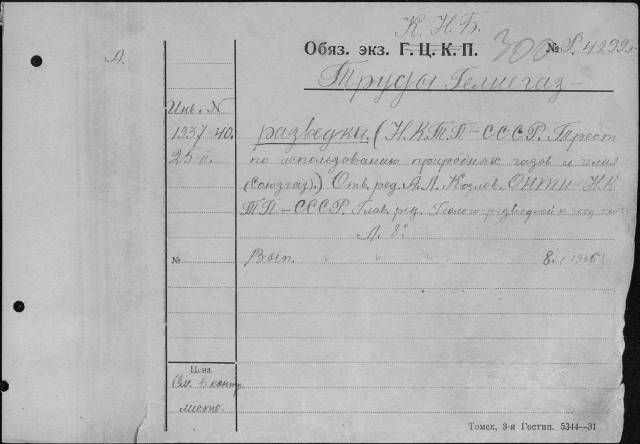 К. Н. Б.
Обяз. экз. Г. Ц. К. П. 300 № Р. 4232
Л.
Труды Гелиегаз-
Инв. N
1937-40.
25 п.
разведки. (НКТП-СССР. Трест
по использованию природных газов и гелия
(Союзгаз).) Отв. ред. А. Л. Козлов. ОНТИ-НК
ТП-СССР. Глав. ред. Геолого-разведочной и
Л. 8°
№ Вып. " " " 8. (1936)
Цена
См. в контр.
листе.
Томск, 3-я Гостип. 5344—31